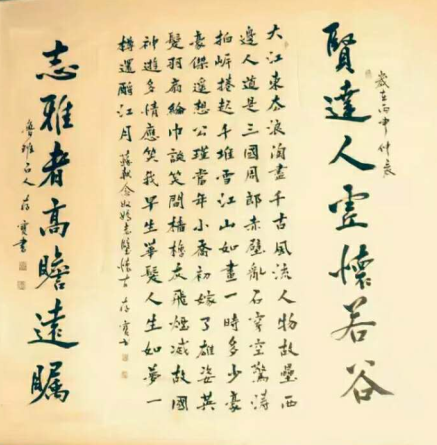 賢達人虛懷若谷
歲在丙申仲
大江東去浪淘盡千古風流人物故壘西
邊人道是三國周郎赤壁亂石穿空驚濤
拍岸捲起千堆雪江山如畫一時多少豪
豪傑遙想公瑾當年小喬初嫁了雄姿英
髮羽扇綸巾談笑間檣櫓灰飛煙滅故國
神遊多情應笑我早生華髮人生如夢一
樽還酹江月 蘇軾念奴嬌赤壁懷古 存寶書
志雅者高瞻遠矚
人存寶書